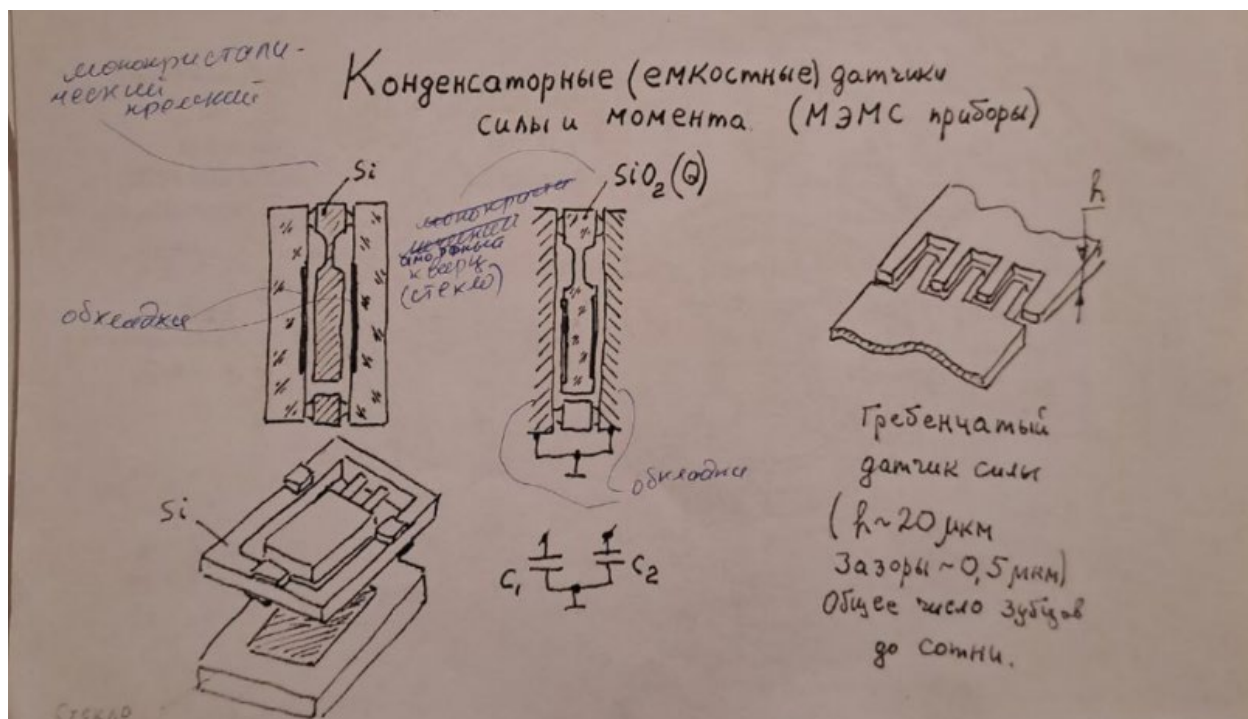 монокристали-
ческий
кремний
Конденсаторные (емкостные) датчики
силы и момента. (МЭМС приборы)
Si
SiO₂(Q)
аморфный
кварц
(стекло)
h
обкладки
обкладки
Si
C₁
C₂
Гребенчатый
датчик силы
(h~20 мкм
Зазоры ~0,5 мкм)
Общее число зубцов
до сотни.
Стекло